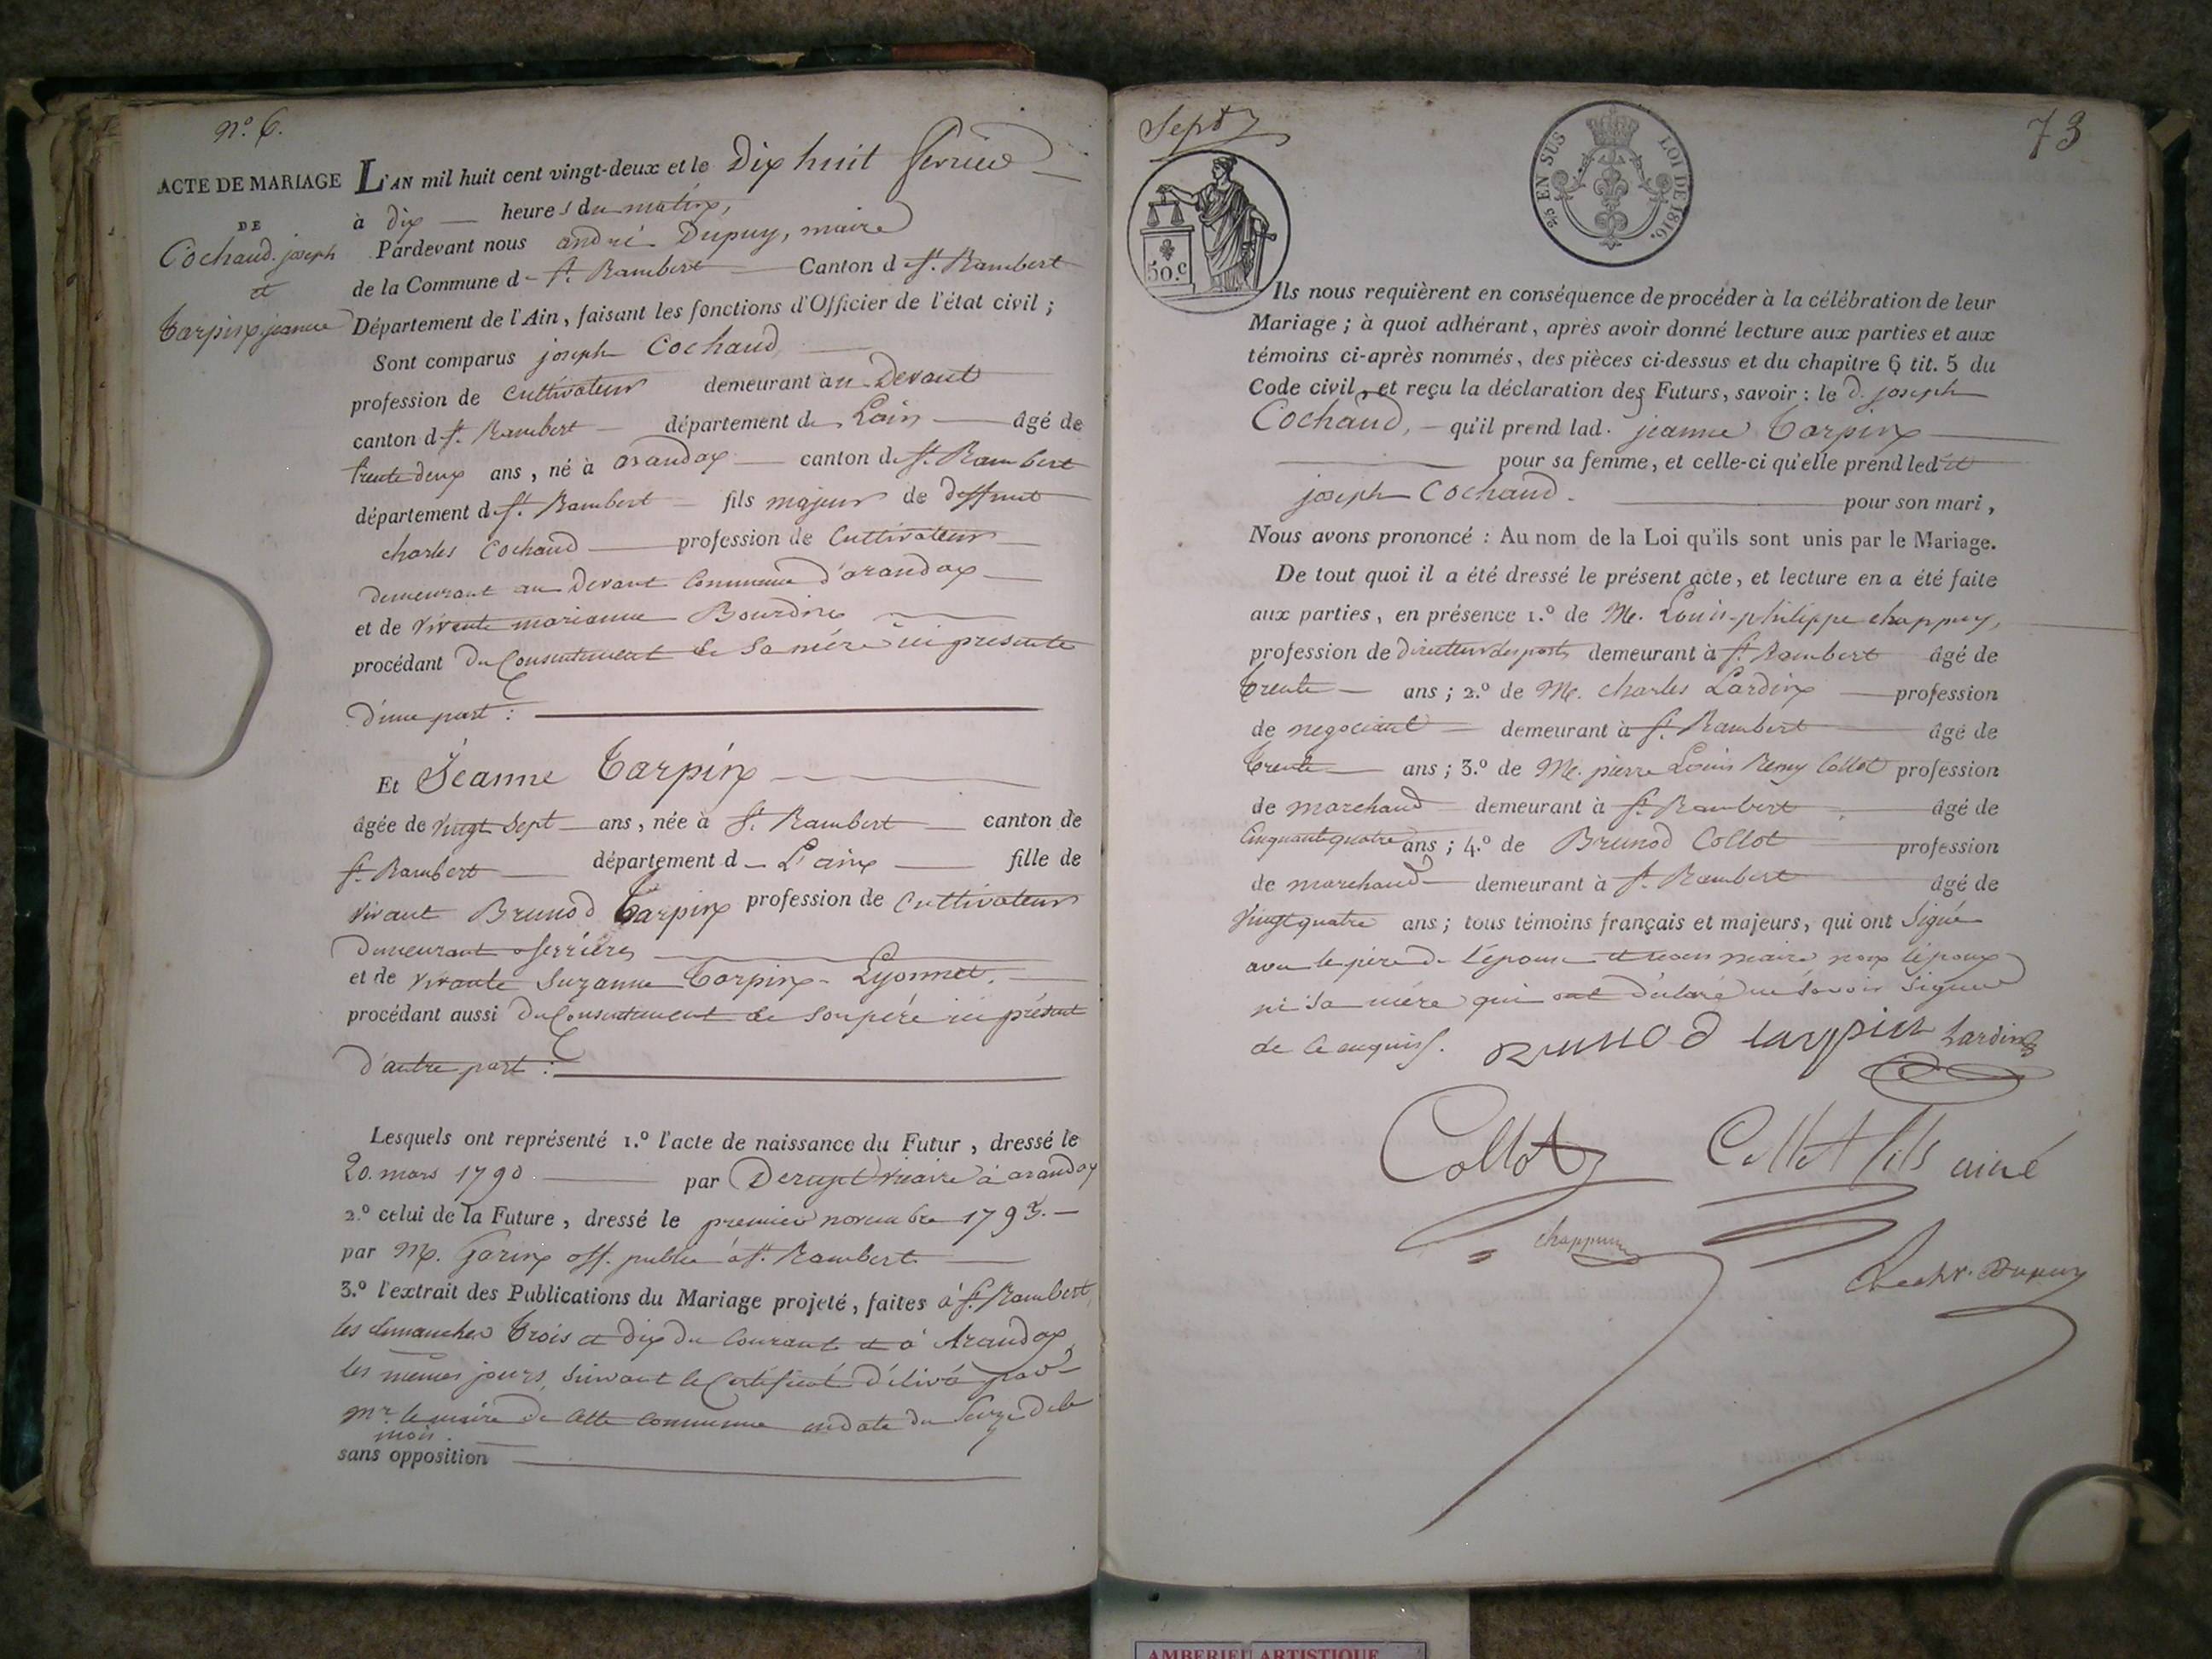 n.o 6.
ACTE DE MARIAGE
DE
Cochaud joseph
et
Tarpin jeanne
L'AN mil huit cent vingt-deux et le Dix huit fevrier
à dix heures du matin,
Pardevant nous andré Dupuy, maire
de la Commune d St. Rambert Canton d St. Rambert
Département de l'Ain, faisant les fonctions d'Officier de l'état civil ;
Sont comparus joseph Cochaud
profession de cultivateur demeurant au Devant
canton d St. Rambert département de Lain âgé de
trente deux ans, né à arandax canton de St. Rambert
département d St. Rambert fils majeur de deffunt
charles Cochaud profession de Cultivateur
demeurant au Devant Commune d'arandax
et de vivante marianne Bourdin
procédant du Consentement de sa mére ici presente
d'une part :
Et Jeanne Tarpin
âgée de vingt sept ans, née à St. Rambert canton de
St. Rambert département d L'ain fille de
vivant Brunod Tarpin profession de Cultivateur
demeurant a serrières
et de vivante Suzanne Tarpin-Lyonnet.
procédant aussi du Consentement de son péré ici présent
d'autre part :
Lesquels ont représenté 1.º l'acte de naissance du Futur, dressé le
20. mars 1790 par Derupt vicaire à arandax
2.º celui de la Future, dressé le premier novembre 1793.
par M. Garin off. public à St. Rambert
3.º l'extrait des Publications du Mariage projeté, faites à St. Rambert,
les dimanches trois et dix du Courant et à Arandax,
les mêmes jours, suivant le Certificat délivré par
Mr. le maire de cette commune en date du seize de ce
mois.
sans opposition
Sept
73
50.c
25 EN SUS
LOI DE 1816.
Ils nous requièrent en conséquence de procéder à la célébration de leur
Mariage ; à quoi adhérant, après avoir donné lecture aux parties et aux
témoins ci-après nommés, des pièces ci-dessus et du chapitre 6 tit. 5 du
Code civil, et reçu la déclaration des Futurs, savoir : le d. joseph
Cochaud, qu'il prend lad. jeanne Tarpin
pour sa femme, et celle-ci qu'elle prend led.
joseph Cochaud. pour son mari,
Nous avons prononcé : Au nom de la Loi qu'ils sont unis par le Mariage.
De tout quoi il a été dressé le présent acte, et lecture en a été faite
aux parties, en présence 1.º de Me. Louis-philippe chappuy,
profession de directeur des posts demeurant à St. Rambert âgé de
trente ans ; 2.º de Me. charles Lardin profession
de negociant demeurant à St. Rambert âgé de
trente ans ; 3.º de Me. pierre Louis Remy Collot profession
de marchand demeurant à St. Rambert âgé de
Cinquante quatre ans ; 4.º de Brunod Collot profession
de marchand demeurant à St. Rambert âgé de
vingt quatre ans ; tous témoins français et majeurs, qui ont Signé
avec le père de l'épouse et nous maire non l'époux
ni sa mére qui ont déclaré ne savoir signer
de ce enquis.
Brunod tarpin Lardin
Collot Collot fils ainé
chappuy
Dupuy
AMBERIEU ARTISTIQUE